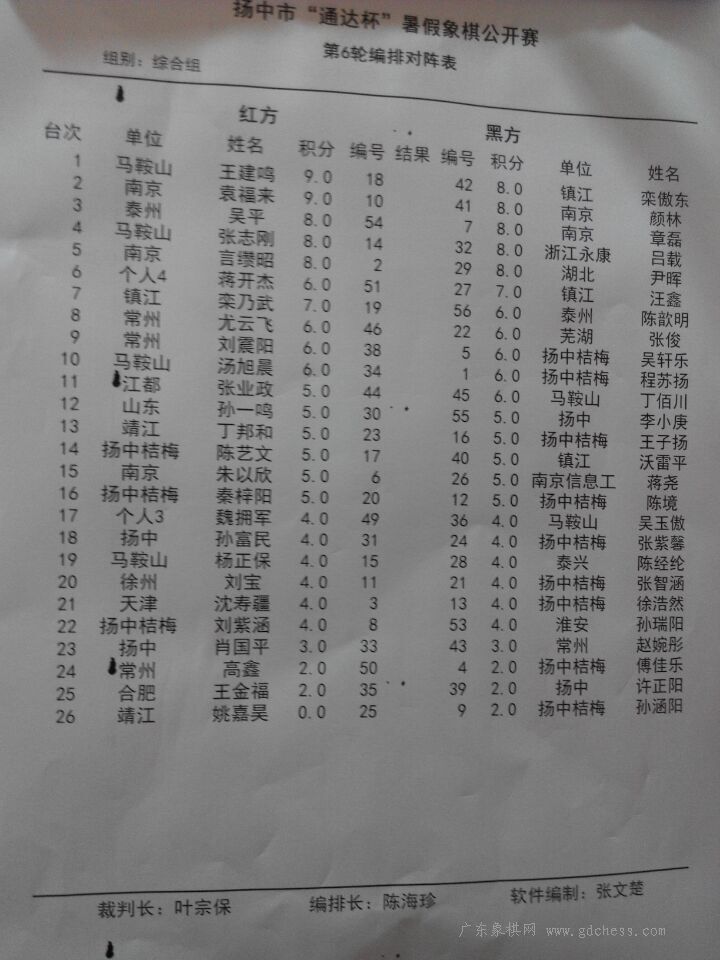 扬中市“通达杯”暑假象棋公开赛
第6轮编排对阵表
组别：综合组
红方 黑方
台次 单位 姓名 积分 编号 结果 编号 积分 单位 姓名
1 马鞍山 王建鸣 9.0 18 42 8.0 镇江 栾傲东
2 南京 袁福来 9.0 10 41 8.0 南京 颜林
3 泰州 吴平 8.0 54 7 8.0 南京 章磊
4 马鞍山 张志刚 8.0 14 32 8.0 浙江永康 吕载
5 南京 言缵昭 8.0 2 29 8.0 湖北 尹晖
6 个人4 蒋开杰 6.0 51 27 7.0 镇江 汪鑫
7 镇江 栾乃武 7.0 19 56 6.0 泰州 陈歆明
8 常州 尤云飞 6.0 46 22 6.0 芜湖 张俊
9 常州 刘震阳 6.0 38 5 6.0 扬中桔梅 吴轩乐
10 马鞍山 汤旭晨 6.0 34 1 6.0 扬中桔梅 程苏扬
11 江都 张业政 5.0 44 45 6.0 马鞍山 丁佰川
12 山东 孙一鸣 5.0 30 55 5.0 扬中 李小庚
13 靖江 丁邦和 5.0 23 16 5.0 扬中桔梅 王子扬
14 扬中桔梅 陈艺文 5.0 17 40 5.0 镇江 沃雷平
15 南京 朱以欣 5.0 6 26 5.0 南京信息工 蒋尧
16 扬中桔梅 秦梓阳 5.0 20 12 5.0 扬中桔梅 陈境
17 个人3 魏拥军 4.0 49 36 4.0 马鞍山 吴玉傲
18 扬中 孙富民 4.0 31 24 4.0 扬中桔梅 张紫馨
19 马鞍山 杨正保 4.0 15 28 4.0 泰兴 陈经纶
20 徐州 刘宝 4.0 11 21 4.0 扬中桔梅 张智涵
21 天津 沈寿疆 4.0 3 13 4.0 扬中桔梅 徐浩然
22 扬中桔梅 刘紫涵 4.0 8 53 4.0 淮安 孙瑞阳
23 扬中 肖国平 3.0 33 43 3.0 常州 赵婉彤
24 常州 高鑫 2.0 50 4 2.0 扬中桔梅 傅佳乐
25 合肥 王金福 2.0 35 39 2.0 扬中 许正阳
26 靖江 姚嘉昊 0.0 25 9 2.0 扬中桔梅 孙涵阳
裁判长：叶宗保 编排长：陈海珍 软件编制：张文楚
广东象棋网 www.gdchess.com